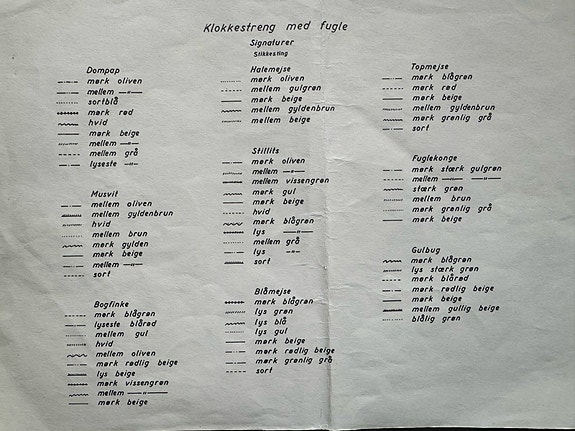 Klokkestreng med fugle
Signaturer
Stikkesting
Dompap
mørk oliven
mellem —"—
sortblå
mørk rød
hvid
mørk beige
mellem —"—
mellem grå
lyseste —"—
Musvit
mellem oliven
mellem gyldenbrun
hvid
mellem brun
mørk gylden
mørk beige
mellem —"—
sort
Bogfinke
mørk blågrøn
lyseste blårød
mellem gul
hvid
mellem oliven
mørk rødlig beige
lys beige
mørk vissengrøn
mellem —"—
mørk beige
Halemejse
mørk oliven
mellem gulgrøn
mørk beige
mellem gyldenbrun
mellem beige
Stillits
mørk oliven
mellem —"—
mellem vissengrøn
mørk gul
mørk beige
hvid
mørk blågrøn
lys —"—
mellem grå
lys —"—
sort
Blåmejse
mørk blågrøn
lys grøn
lys blå
lys gul
mørk beige
mørk rødlig beige
mørk grønlig grå
sort
Topmejse
mørk blågrøn
mørk rød
mørk beige
mellem gyldenbrun
mørk grønlig grå
sort
Fuglekonge
mørk stærk gulgrøn
mellem —"— —"—
stærk grøn
mellem brun
mørk grønlig grå
mørk beige
Gulbug
mørk blågrøn
lys stærk grøn
mørk blårød
mørk rødlig beige
mørk beige
mellem gullig beige
blålig grøn